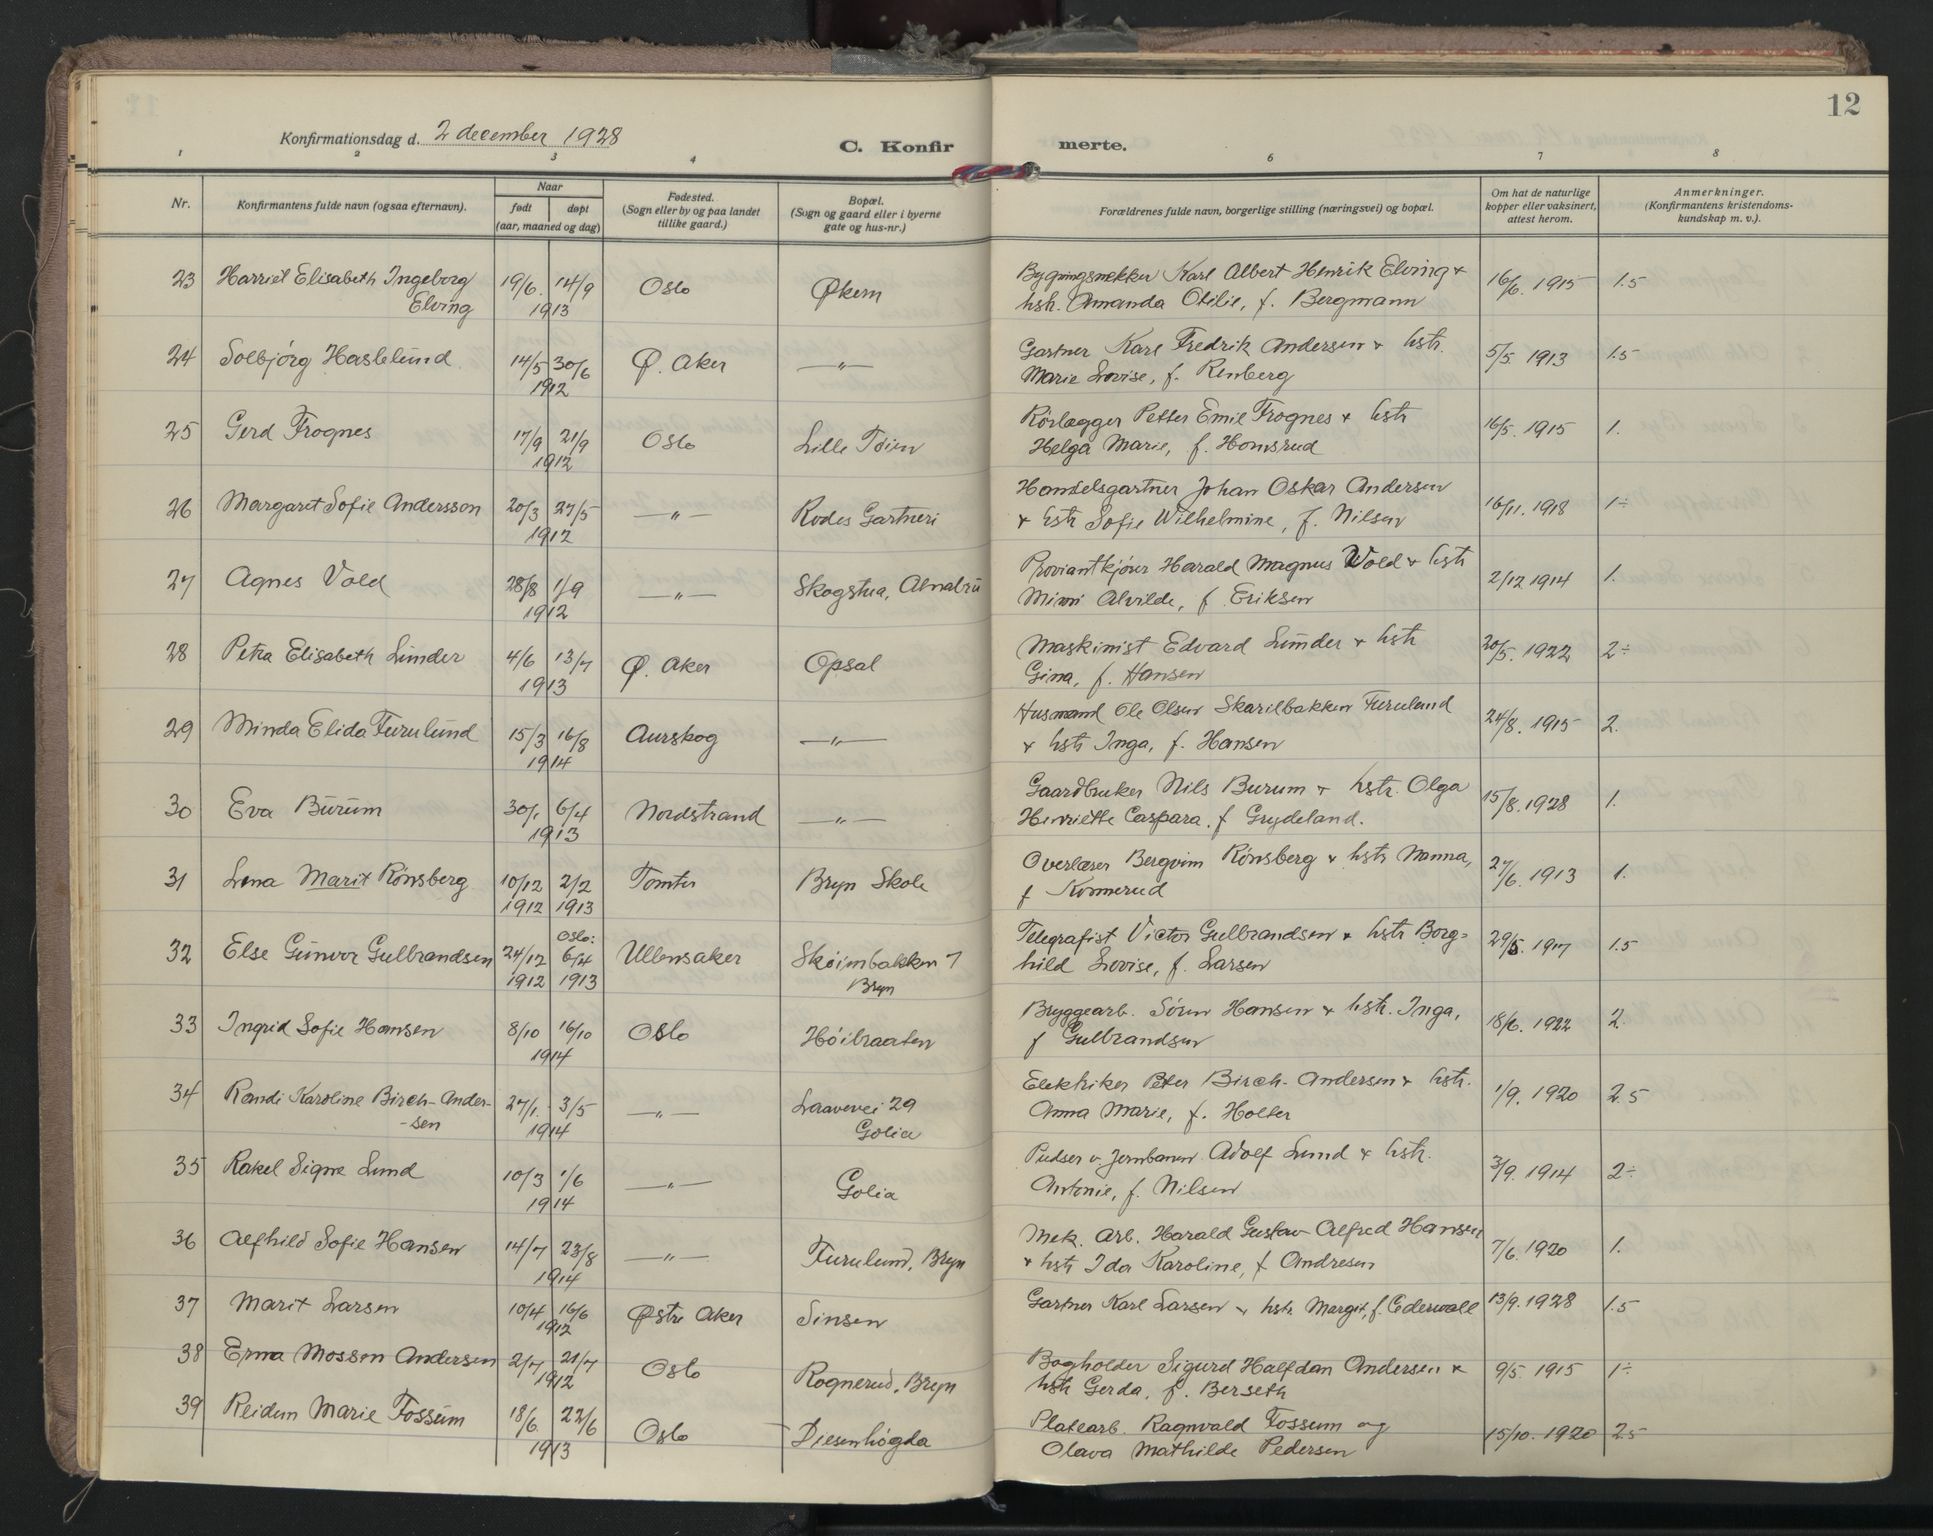 12
Konfirmationsdag d. 2 december 1928
C. Konfir
merte.
1 2 3 4 6 7 8
Nr.
Konfirmantens fulde navn (ogsaa efternavn).
Naar
født døpt
(aar, maaned og dag)
Fødested.
(Sogn eller by og paa landet
tillike gaard.)
Bopæl.
(Sogn og gaard eller i byerne
gate og hus-nr.)
Forældrenes fulde navn, borgerlige stilling (næringsvei) og bopæl.
Om hat de naturlige
kopper eller vaksinert,
attest herom.
Anmerkninger.
(Konfirmantens kristendoms-
kundskap m. v.).
23 Harriet Elisabeth Ingeborg 19/6. 14/9 Oslo Økern Bygningsnekker Karl Albert Henrik Elving + 16/6. 1915 1.5
Elving 1913 hsh. Amanda Otilie, f. Bergmann
24 Solbjörg Haslelund 14/5 30/6 Ø. Aker —"— Gartner Karl Fredrik Andersen + hstr. 5/5 1913 1.5
1912 Marie Lovise, f. Renberg
25 Gerd Frognes 17/9 21/9 Oslo Lille Töien Rörlægger Petter Emil Frognes + hstr 16/5. 1915 1.
1912 Helga Marie, f. Homsrud
26 Margaret Sofie Andersson 20/3 27/5 —"— Rodes Gartneri Handelsgartner Johan Oskar Andersen 16/11. 1918 1÷
1912 + hstr Sofie Wilhelmine, f. Nilsen
27 Agnes Vold 28/8 1/9 —"— Skogstua, Alnabru Proviantkjörer Harald Magnus Wold + hstr 2/12 1914 1.
1912 Minni Alvilde, f. Eriksen
28 Petra Elisabeth Lunder 4/6 13/7 Ø. Aker Opsal Maskinist Edvard Lunder + hstr 20/5. 1922 2÷
1913 Gina, f. Hansen
29 Minda Elida Furulund 15/3 16/8 Aurskog —"— Husmand Ole Olsen Skarilbakken Furuland 24/8. 1915 2.
1914 + hstr Inga, f. Hansen
30 Eva Burum 30/1 6/4 Nordstrand —"— Gaardbruker Nils Burum + hstr. Olga 15/8. 1928 1.
1913 Henriette Caspara. f Grydeland.
31 Lena Marit Rönsberg 10/12 2/2 Tomter Bryn Skole Overlærer Bergvin Rönsberg + hstr Nanna, 27/6. 1913 1.
1912 1913 f Konnerud
Oslo:
32 Else Gunvor Gulbrandsen 24/12 6/4 Ullensaker Skøimbakken 7 Telegrafist Victor Gulbrandsen + hstr Borg= 29/5. 1917 1.5
1912 1913 Bryn hild Lovise, f. Larsen
33 Ingrid Sofie Hansen 8/10 16/10 Oslo Höibraaten Bryggearb. Sören Hansen + hstr. Inga, 18/6. 1922 2.
1914 f Gulbrandsen
34 Randi Karoline Birch-Ander- 27/1. 3/5 —"— 29 Elektriker Peter Birch-Andersen + hstr. 1/9. 1920 2.5
-sen 1914 Golia Anna Marie, f. Holter
35 Rakel Signe Lund 10/3 1/6 —"— Golia Pudser v. Jernbanen Adolf Lund + hstr. 3/9. 1914 2÷
1914 Antonie, f. Nilsen
36 Alfhild Sofie Hansen 14/7 23/8 —"— Furulund, Bryn Mek. Arb. Harald Gustav Alfred Hansen 7/6. 1920 1.
1914 + hstr Ida Karoline, f Andresen
37 Marit Larsen 10/4 16/6 Østre Aker Sinsen Gartner Karl Larsen + hstr. Margit, f. Cederwall 13/9. 1928 1.5
1912
38 Erna Mossen Andersen 2/7 21/7 Oslo Rognerud, Bryn Bogholder Sigurd Halfdan Andersen + 9/5. 1915 1÷
1912 hstr Gerda, f. Berseth
39 Reidun Marie Fossum 18/6. 22/6 Oslo Diesenhögda Platearb. Ragnvald Fossum og 15/10. 1920 2.5
1913 Olava Mathilde Pedersen